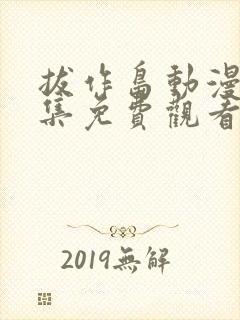 拔作島動漫
集免費觀看
2019無解